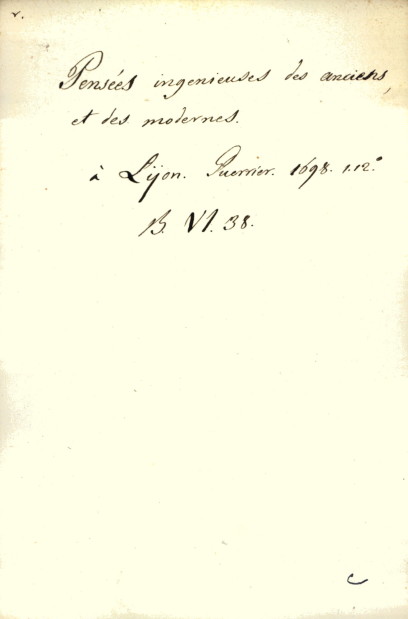 v.
Pensées ingenieuses des anciens,
et des modernes.
à Lÿon. Guerrier. 1698. 1.12.°
B. VI. 38.
c